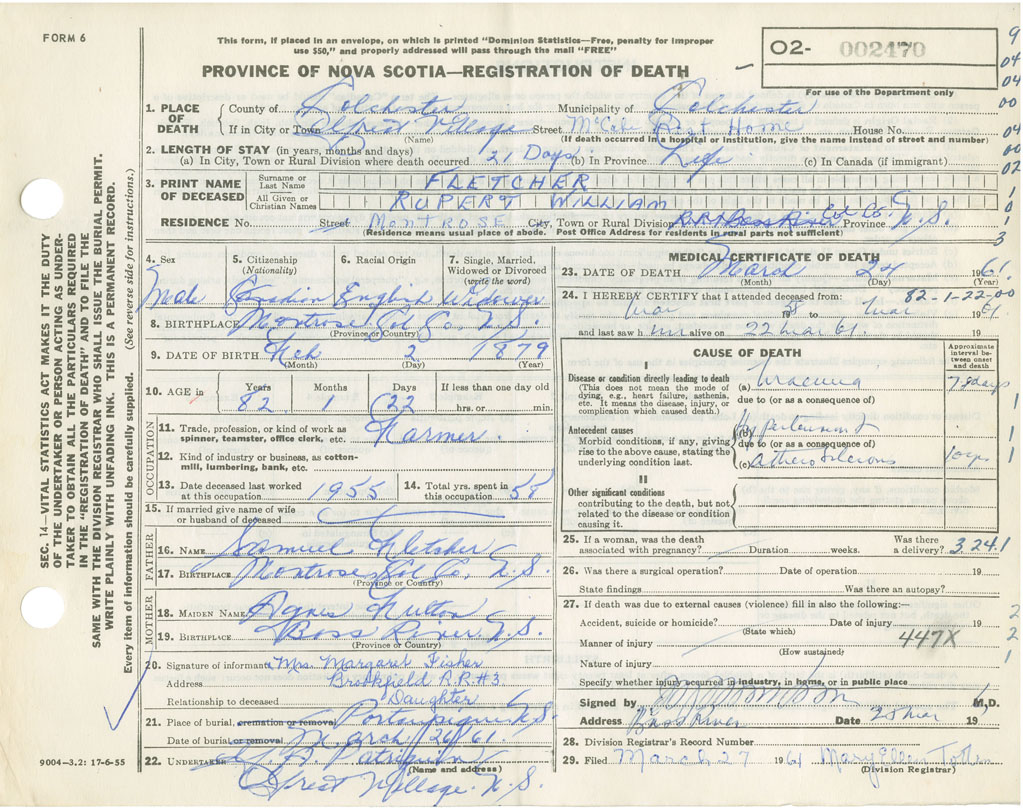 FORM 6
This form, if placed in an envelope, on which is printed "Dominion Statistics—Free, penalty for improper
use $50," and properly addressed will pass through the mail "FREE"
02- 002470
PROVINCE OF NOVA SCOTIA—REGISTRATION OF DEATH
For use of the Department only
9
04
04
00
04
00
02
1
0
1
3
SEC. 14—VITAL STATISTICS ACT MAKES IT THE DUTY
OF THE UNDERTAKER OR PERSON ACTING AS UNDER-
TAKER TO OBTAIN ALL THE PARTICULARS REQUIRED
IN THE "REGISTRATION OF DEATH" AND TO FILE THE
SAME WITH THE DIVISION REGISTRAR WHO SHALL ISSUE THE BURIAL PERMIT.
WRITE PLAINLY WITH UNFADING INK. THIS IS A PERMANENT RECORD.
Every item of information should be carefully supplied. (See reverse side for instructions.)
1. PLACE OF DEATH County of Colchester Municipality of Colchester
If in City or Town Village Street McCabe Rest Home House No.
(Name) (If death occurred in a hospital or institution, give the name instead of street and number)
2. LENGTH OF STAY (in years, months and days)
(a) In City, Town or Rural Division where death occurred 21 Days (b) In Province Life (c) In Canada (if immigrant)
3. PRINT NAME OF DECEASED Surname or Last Name FLETCHER
All Given or Christian Names RUPERT WILLIAM
RESIDENCE No. Street MONTROSE City, Town or Rural Division Col. Co. Province N.S.
(Residence means usual place of abode. Post Office Address for residents in rural parts not sufficient)
4. Sex 5. Citizenship (Nationality) 6. Racial Origin 7. Single, Married, Widowed or Divorced (write the word)
Male Canadian English Widower
8. BIRTHPLACE Montrose Col. Co. N.S.
(Province or Country)
9. DATE OF BIRTH Feb 2 1879
(Month) (Day) (Year)
10. AGE in Years Months Days If less than one day old
82 1 22 hrs. or min.
OCCUPATION
11. Trade, profession, or kind of work as spinner, teamster, office clerk, etc. Farmer
12. Kind of industry or business, as cotton-mill, lumbering, bank, etc.
13. Date deceased last worked at this occupation 1955 14. Total yrs. spent in this occupation 58
15. If married give name of wife or husband of deceased
FATHER
16. NAME Samuel Fletcher
17. BIRTHPLACE Montrose Col. Co. N.S.
(Province or Country)
MOTHER
18. MAIDEN NAME Agnes Fulton
19. BIRTHPLACE Bass River N.S.
(Province or Country)
20. Signature of informant Mrs. Margaret Fisher
Address Brookfield R.R.#3
Relationship to deceased Daughter
21. Place of burial, cremation or removal Portaupique N.S.
Date of burial or removal March 26/61
22. UNDERTAKER
(Name and address)
Village N.S.
9004-3.2: 17-6-55
MEDICAL CERTIFICATE OF DEATH
23. DATE OF DEATH March 24 1961
(Month) (Day) (Year)
82-1-22-00
24. I HEREBY CERTIFY that I attended deceased from:
Mar 19 58 to Mar 1961
and last saw h im alive on 22 Mar 61 19
CAUSE OF DEATH
Approximate interval between onset and death
I
Disease or condition directly leading to death (a) Uraemia
(This does not mean the mode of dying, e.g., heart failure, asthenia, etc. It means the disease, injury, or complication which caused death.)
due to (or as a consequence of)
Antecedent causes (b)
Morbid conditions, if any, giving rise to the above cause, stating the underlying condition last.
due to (or as a consequence of)
(c)
II
Other significant conditions
contributing to the death, but not related to the disease or condition causing it.
1
1
1
25. If a woman, was the death associated with pregnancy? Duration weeks. Was there a delivery? 3.24.1
26. Was there a surgical operation? Date of operation 19
State findings Was there an autopsy?
27. If death was due to external causes (violence) fill in also the following:—
Accident, suicide or homicide? Date of injury 19
(State which)
447X
Manner of injury
(How sustained)
Nature of injury
2
2
1
Specify whether injury occurred in industry, in home, or in public place
Signed by M.D.
Address Bass River Date 25 Mar 19
28. Division Registrar's Record Number
29. Filed March 27 1961 Mary Ellen
(Division Registrar)